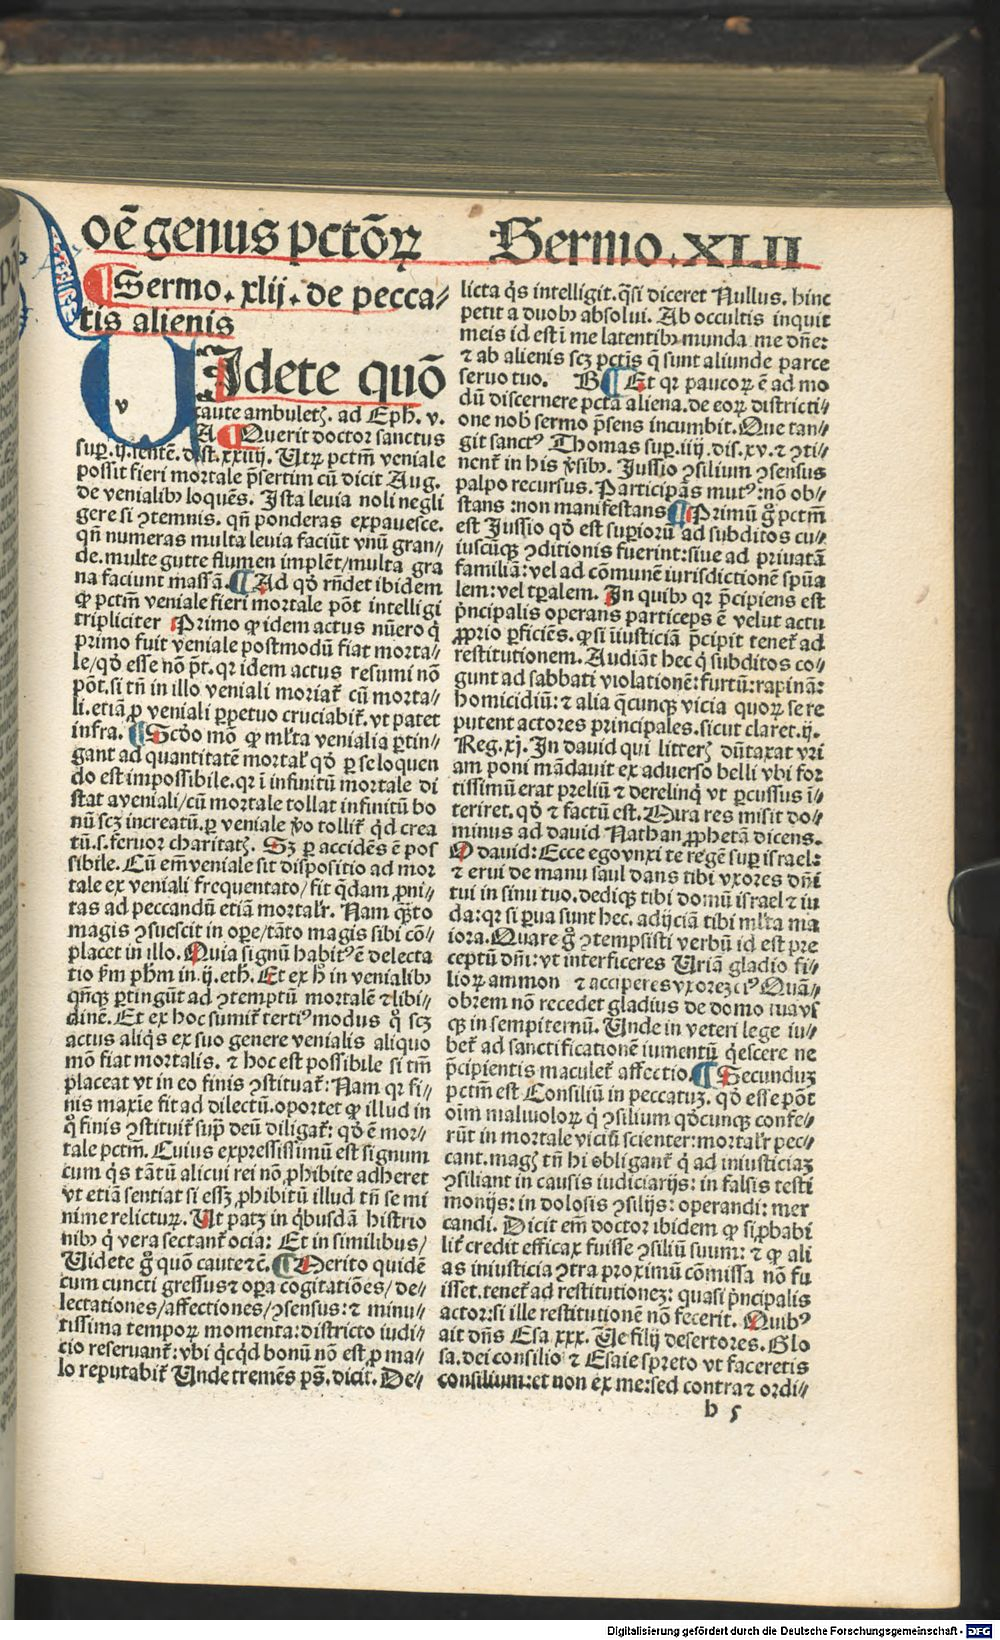 oē genus pctōꝝ Sermo.XLII
¶Sermo.xlij.de pecca⸗
tis alienis
UIdete quō
v
caute ambuletꝭ. ad Eph. v.
A ¶Querit doctor sanctus
suꝑ .ij. sentē. dist. xxiiij. Utꝝ pctm̄ veniale
possit fieri mortale p̄sertim cū dicit Aug.
de venialibꝰ loquēs. Ista leuia noli negli
gere si ꝯtemnis. qn̄ ponderas expauesce.
qn̄ numeras multa leuia faciūt vnū gran⸗
de. multe gutte flumen implēt/multa gra
na faciunt massā. ¶Ad qd̓ rn̄det ibidem
ꝙ pctm̄ veniale fieri mortale pōt intelligi
tripliciter Primo ꝙ idem actus nūero q̇
primo fuit veniale postmodū fiat morta⸗
le/qd̓ esse nō pōt. qꝛ idem actus resumi nō
pōt. si tn̄ in illo veniali moriat᷑ cū morta⸗
li. etiā ꝓ veniali ꝑpetuo cruciabit᷑. vt patet
infra. ¶Scdo mō ꝙ ml̓ta venialia ꝑtin⸗
gant ad quantitatē mortal̓ qd̓ ꝑ se loquen
do est impossibile. qꝛ ī infinitū mortale di
stat a veniali/cū mortale tollat infinitū bo
nū scꝫ increatū. ꝑ veniale ꝟo tollit᷑ q̇d crea
tū .s. feruor charitatꝭ. Sꝫ ꝑ accidēs ē pos
sibile. Cū em̄ veniale sit dispositio ad mor
tale ex veniali frequentato/fit q̇dam ꝓni⸗
tas ad peccandū etiā mortalr̓. Nam qn̄to
magis ꝯsuescit in oꝑe/tāto magis sibi cō⸗
placet in illo. Quia signū habitꝰ ē delecta
tio ẜm ph̄m in .ij. eth. Et ex h̓ in venialibꝰ
qn̄qꝫ ꝑtingūt ad ꝯtemptū mortalē ⁊ libi⸗
dinē. Et ex hoc sumit᷑ tertiꝰ modus q̊ scꝫ
actus aliq̇s ex suo genere venialis aliquo
mō fiat mortalis. ⁊ hoc est possibile si tm̄
placeat vt in eo finis ꝯstituat᷑: Nam qꝛ fi⸗
nis maxīe fit ad dilectū. oportet ꝙ illud in
q̊ finis ꝯstituit᷑ supͣ deū diligat᷑: qd̓ ē mor⸗
tale pctm̄. Cuius expressissimū est signum
cum q̇s tātū alicui rei nō ꝓhibite adheret
vt etiā sentiat si essꝫ ꝓhibitū illud tn̄ se mi
nime relicturꝝ. Ut patꝫ in q̇busdā histrio
nibꝰ q̇ vera sectant᷑ ocia: Et in similibus/
Uidete g̊ quō caute ⁊c̄. ¶Merito quidē
cum cuncti gressus ⁊ oꝑa cogitatiōes/de⸗
lectationes/affectiones/ꝯsensus: ⁊ minu⸗
tissima tempoꝝ momenta: districto iudi⸗
cio reseruant᷑: vbi q̇cq̇d bonū nō est, ꝓ ma⸗
lo reputabit᷑ Unde tremēs ps̄. dicit. De⸗
licta q̇s intelligit. q̄si diceret Nullus. hinc
petit a duobꝰ absolui. Ab occultis inquit
meis id est ī me latentibꝰ munda me dn̄e:
⁊ ab alienis scꝫ pctīs q̄ sunt aliunde parce
seruo tuo. B ¶Et qꝛ paucoꝝ ē ad mo
dū discernere pctā aliena. de eoꝝ districti⸗
one nob̓ sermo p̄sens incumbit. Que tan⸗
git sanctꝰ Thomas suꝑ .iiij. dis. xv. ⁊ ꝯti⸗
nent᷑ in his ꝟsibꝰ. Jussio ꝯsilium ꝯsensus
palpo recursus. Participās mutꝰ: nō ob⸗
stans: non manifestans ¶Primū g̊ pctm̄
est Jussio qd̓ est suꝑiorū ad subditos cu⸗
iuscūqꝫ ꝯditionis fuerint: siue ad priuatā
familiā: vel ad cōmunē iurisdictionē spūa
lem: vel tꝑalem. In quibꝰ qꝛ p̄cipiens est
pͥncipalis operans particeps ē velut actu
ꝓprio ꝑficiēs. ꝙ si iiusticiā p̄cipit tenet᷑ ad
restitutionem. Audiāt hec q̇ subditos co⸗
gunt ad sabbati violationē: furtū: rapinā:
homicidiū: ⁊ alia q̄cunqꝫ vicia quoꝝ se re
putent actores principales. sicut claret .ij.
Reg. xj. In dauid qui litterꝭ dūtaxat vri
am poni mādauit ex aduerso belli vbi for
tissimū erat preliū ⁊ derelinq̇ vt ꝑcussus ī⸗
teriret. qd̓ ⁊ factū est. Qua res misit do⸗
minus ad dauid Nathan ꝓphetā dicens.
O dauid: Ecce ego vnxi te regē suꝑ israel:
⁊ erui de manu saul dans tibi vxores dn̄i
tui in sinu tuo. dediqꝫ tibi domū israel ⁊ iu
da: qꝛ si ꝑua sunt hec. adijciā tibi ml̓ta ma
iora. Quare g̊ ꝯtempsisti verbū id est pre
ceptū dn̄i: vt interficeres Uriā gladio fi⸗
lioꝝ ammon ⁊ acciperes vxorez eiꝰ Quā⸗
obrem nō recedet gladius de domo tua vs
qꝫ in sempiternū. Unde in veteri lege iu⸗
bet᷑ ad sanctificationē iumentū q̇escere ne
p̄cipientis maculet᷑ affectio. ¶Secunduꝫ
pctm̄ est Consiliū in peccatuꝫ. qd̓ esse pōt
oīm maliuoloꝝ q̇ ꝯsilium qd̓cunqꝫ confe⸗
rūt in mortale viciū scienter: mortalr̓ pec⸗
cant. magꝭ tn̄ hi obligant᷑ q̇ ad iniusticiaꝫ
ꝯsiliant in causis iudiciarijs: in falsis testi
monijs: in dolosis ꝯsilijs: operandi: mer
candi. Dicit em̄ doctor ibidem ꝙ si ꝓbabi
lit᷑ credit efficax fuisse ꝯsiliū suum: ⁊ ꝙ ali
as iniusticia ꝯtra proximū cōmissa nō fu
isset. tenet᷑ ad restitutionez: quasi pͥncipalis
actor: si ille restitutionē nō fecerit. Quibꝰ
ait dn̄s Esa xxx. Ue filij desertores. Glo
sa. dei consilio ⁊ Esaie spreto vt faceretis
consilium: et non ex me: sed contra ⁊ ordi⸗
b 5
Digitalisierung gefördert durch die Deutsche Forschungsgemeinschaft - DFG